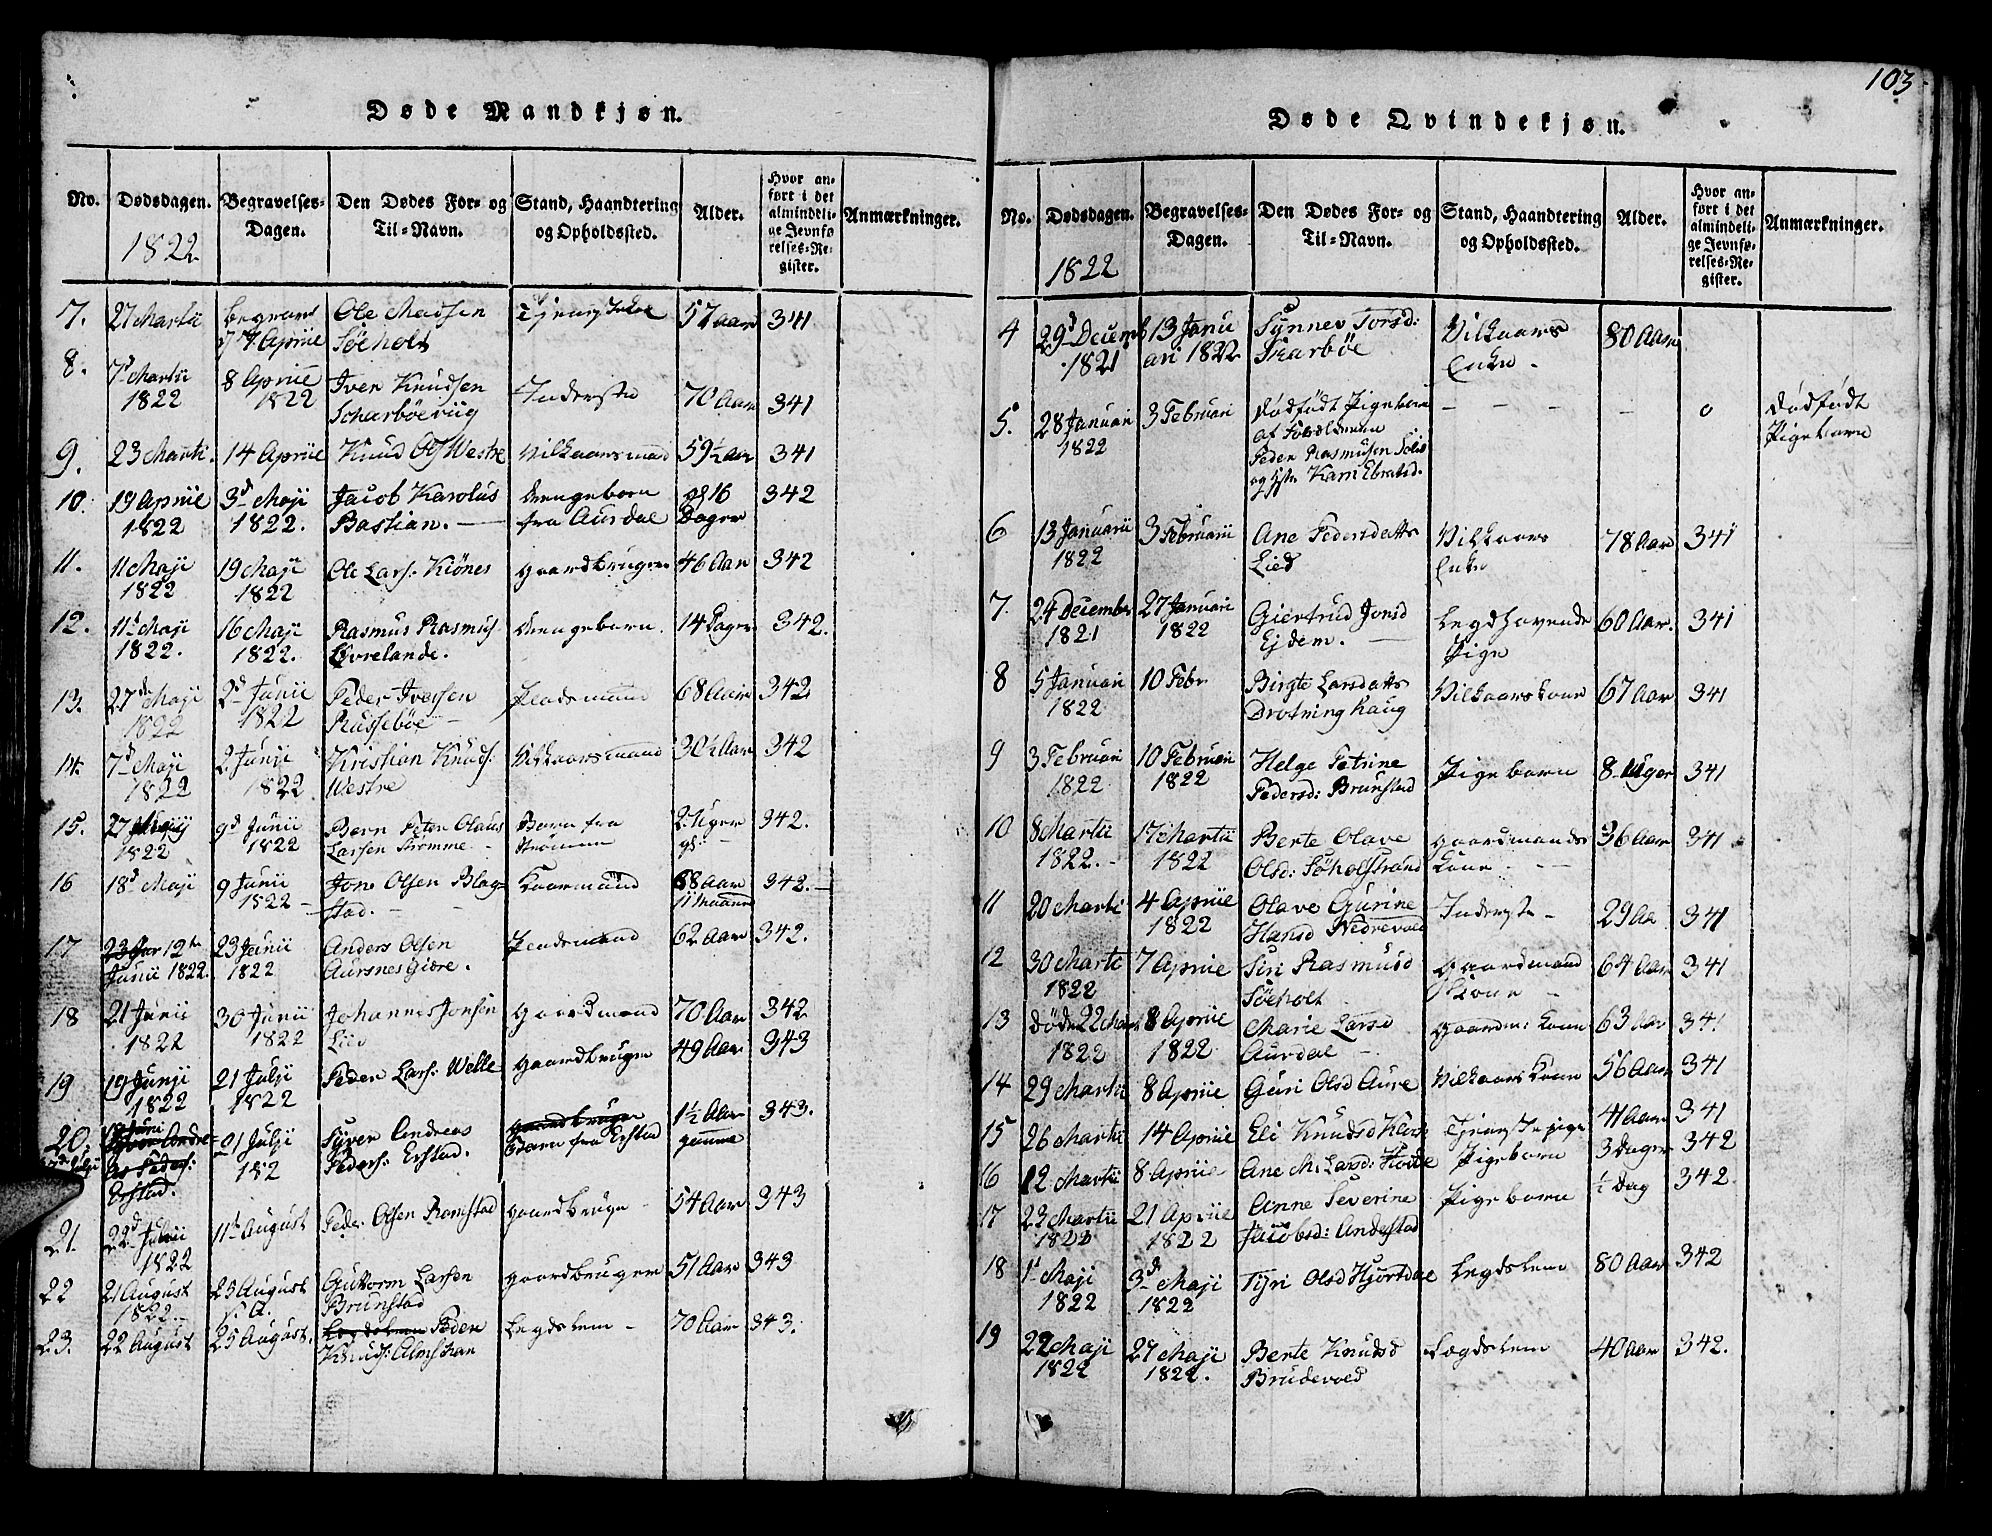 103
Døde Mandkjøn.
No. Dødsdagen. Begravelses-Dagen. Den Dødes For- og Til-Navn. Stand, Haandtering og Opholdssted. Alder. Hvor anført i det almindelige Jevnførelses-Register. Anmærkninger.
1822
7. 27 Martii begravet 7 Aprile Ole Madsen 57 Aar 341
Søeholt
8. 7 Martii 8 Aprile Iver Knudsen Inderste 70 Aar 341
1822 1822
9. 23 Marti. 14 Aprile Knud Ols Westre Vilkaarsmand 59½ Aar 341
10. 19 Aprile 3d Maji Jacob Karolus Drengebarn gl 16 342
1822 1822. Bastian. fra Aurdal Dager
11. 11 Maji 19 Maji Ole Lars: Kiønes gaardbruger 46 Aar 342
1822 1822
12. 11t Maji 16 Maji Rasmus Rasmus Drengebarn. 14 Dager 342.
1822. 1822. Øvrelande.
13. 27de Maji 2d Junii Peder Iversen Pladsmand 68 Aar 342
1822 1822 Russebøe
14. 7d Maji 2 Junii Kristian Knuds: Vilkaarsmand 30½ Aar 342
1822 1822. Westre
15. 27 Maji 9d Junii Barn Peter Olaus Barn fra 2 Uger 342.
1822 1822 Larsen Strømme Strømme gl.
16 18d Maji 9 Junii Jone Olsen Blag= Kaarmand 68 Aar 342.
1822 stad. 11 Maaner
17 12te 23 Junii Anders Olsen Pladsmand 62 Aar 342.
Junii 1822. 1822 Aursnes Giære.
18 21 Junii 30 Junii Johannes Jonsen gaardmand 70 Aar 342
1822 1822 Lied
19 19 Junji 21 Julji Peder Lars: Welle gaardbruger 49 Aar 343
1822 1822
20. 21 Julji Syver Andreas gaardbruger 1½ Aar 343.
182 Peders: Erstad. Barn fra Erstad gamme
Erstad.
21. 22d Julii 11t August Peder Olsen Ramstad gaardbruge 54 Aar 343
1822
22 21 August 25 August Guttorm Larsen gaardbruger 51 Aar 343
1822. Brunstad
23. 22 August 25 August. Legdslem Peder Legdslem 70 Aar 343.
Knuds: Almskaar
Døde Qvindekjøn.
No. Dødsdagen. Begravelses-Dagen. Den Dødes For- og Til-Navn. Stand, Haandtering og Opholdssted. Alder. Hvor anført i det almindelige Jevnførelses-Register. Anmærkninger.
1822
4 29d Decemb 13 Janu Synnev Torsd: Vilkaars 80 Aar
1821 ari 1822 Skarbøe Enke.
5. 28 Januari 3 Februari dødfødt Pigebarn - - - 0 dødfødt
1822 af Pigebarn
Peder Rasmusen
og Karn
6 13 Januarii 3 Februarii Ane Pedersdatts Vilkaars 78 Aar 341
1822 Lied Enke
7. 24 December 27 Januari Giertrud Jonsd Legdhavende 60 Aar. 341
1821 1822 Ejdem. Pige
8 5 Januari 10 Febr Birgte Larsdatts Vilkaarskone 67 Aar 341
1822 Drotninghaug
9 3 Februari 10 Februari Helge Petrine Pigebarn 8 Uger 341
1822 1822 Pedersd: Brunstad
10 8 Martii 17 Martii Berte Olave gaardmands 36 Aar 341
1822. 1822 Olsd: Søholtstrand Kone
11 20 Marti 4 Aprile Olave Gurine Inderste 29 Aa 341
1822 Hansd Nedrevold
12 30 Marti 7 Aprile Siri Rasmusd gaardmand 64 Aar 341
1822 Søeholt Kone
13 døde 22 Mart 8 Aprile Marie Larsd gaardm: Kone 63 Aar 341
1822 1822 Aurdal
14 29 Martii 8 Aprile Guri Olsd Aure Vilkaars Kone 56 Aar 341
15 26 Martii 14 Aprile Eli Knudsd Tjenestepige 41 Aar 341
16 12 Martii 8 Aprile Ane M. Larsd: Pigebarn 3 Dager 342
17 23 Martii 21 Aprile Anne Severine Pigebarn ½ Dag 342
1822 1822 Jacobsd: Andestad
18 1t Maji 3d Maji Tyri Olsd Hjortdal Legdslem 80 Aar 342
1822 1822
19 22 Maji 27 Maji Berte Knudsd Lægdslem 40 Aar 342.
1822 1822. Brudevold